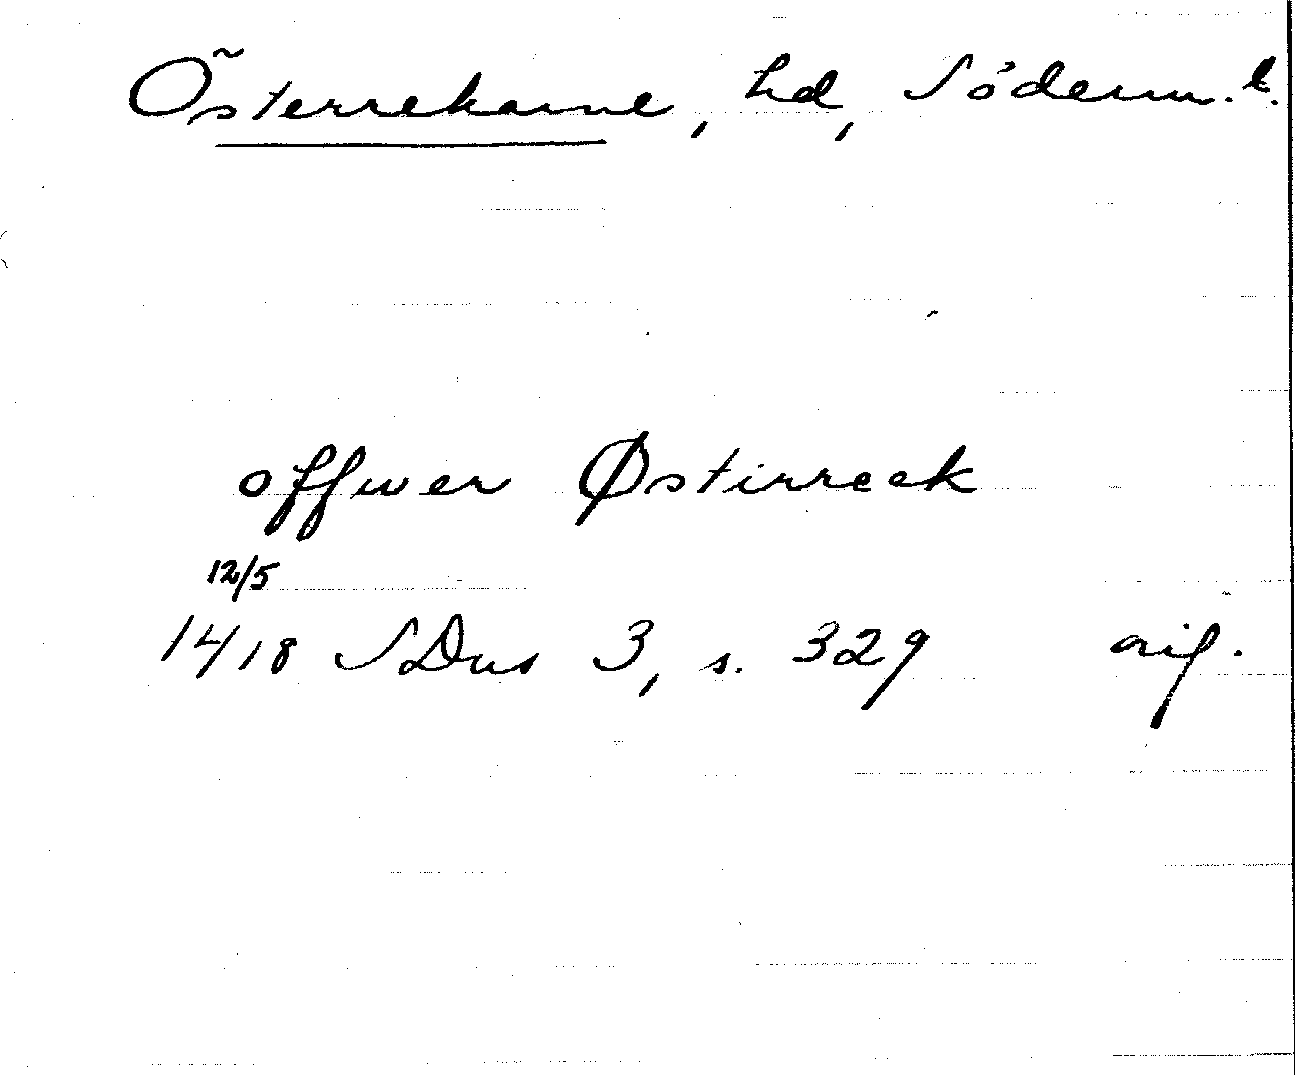 Österrekarne, hd, Söderm. l.
offwer Østirreek
12/5
1418 SDns 3, s. 329 orig.